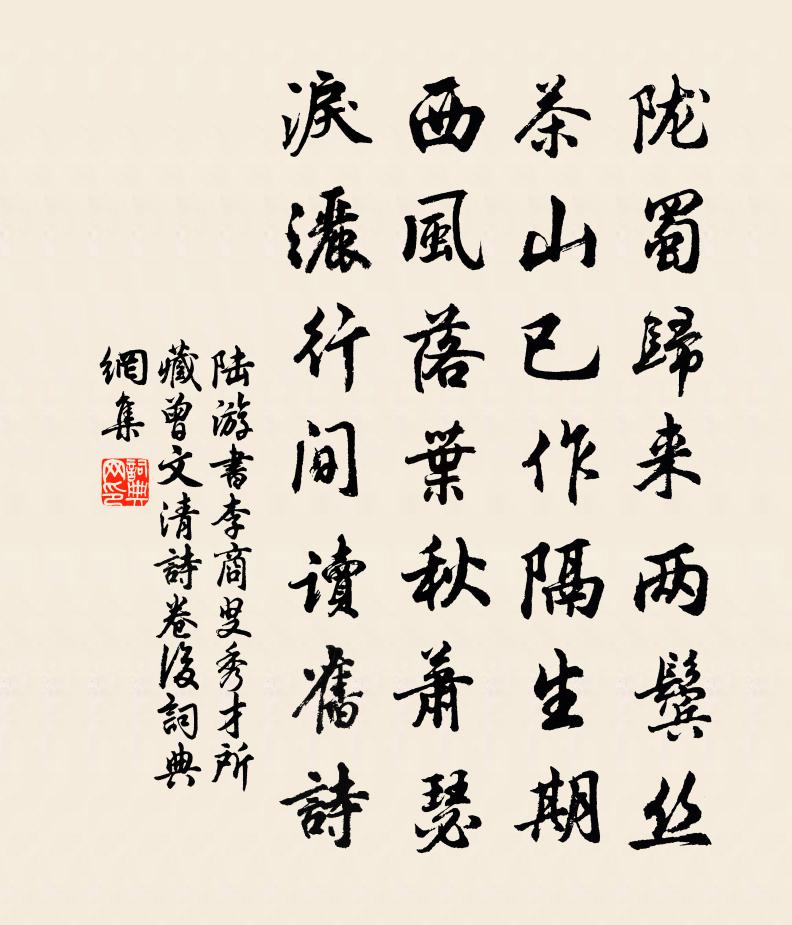 陇蜀歸来两鬓丝
茶山已作隔生期
西風落葉秋蕭瑟
淚灑行间讀舊詩
陆游書李商叟秀才所
藏曾文清詩卷後詞典
網集
詞典网印